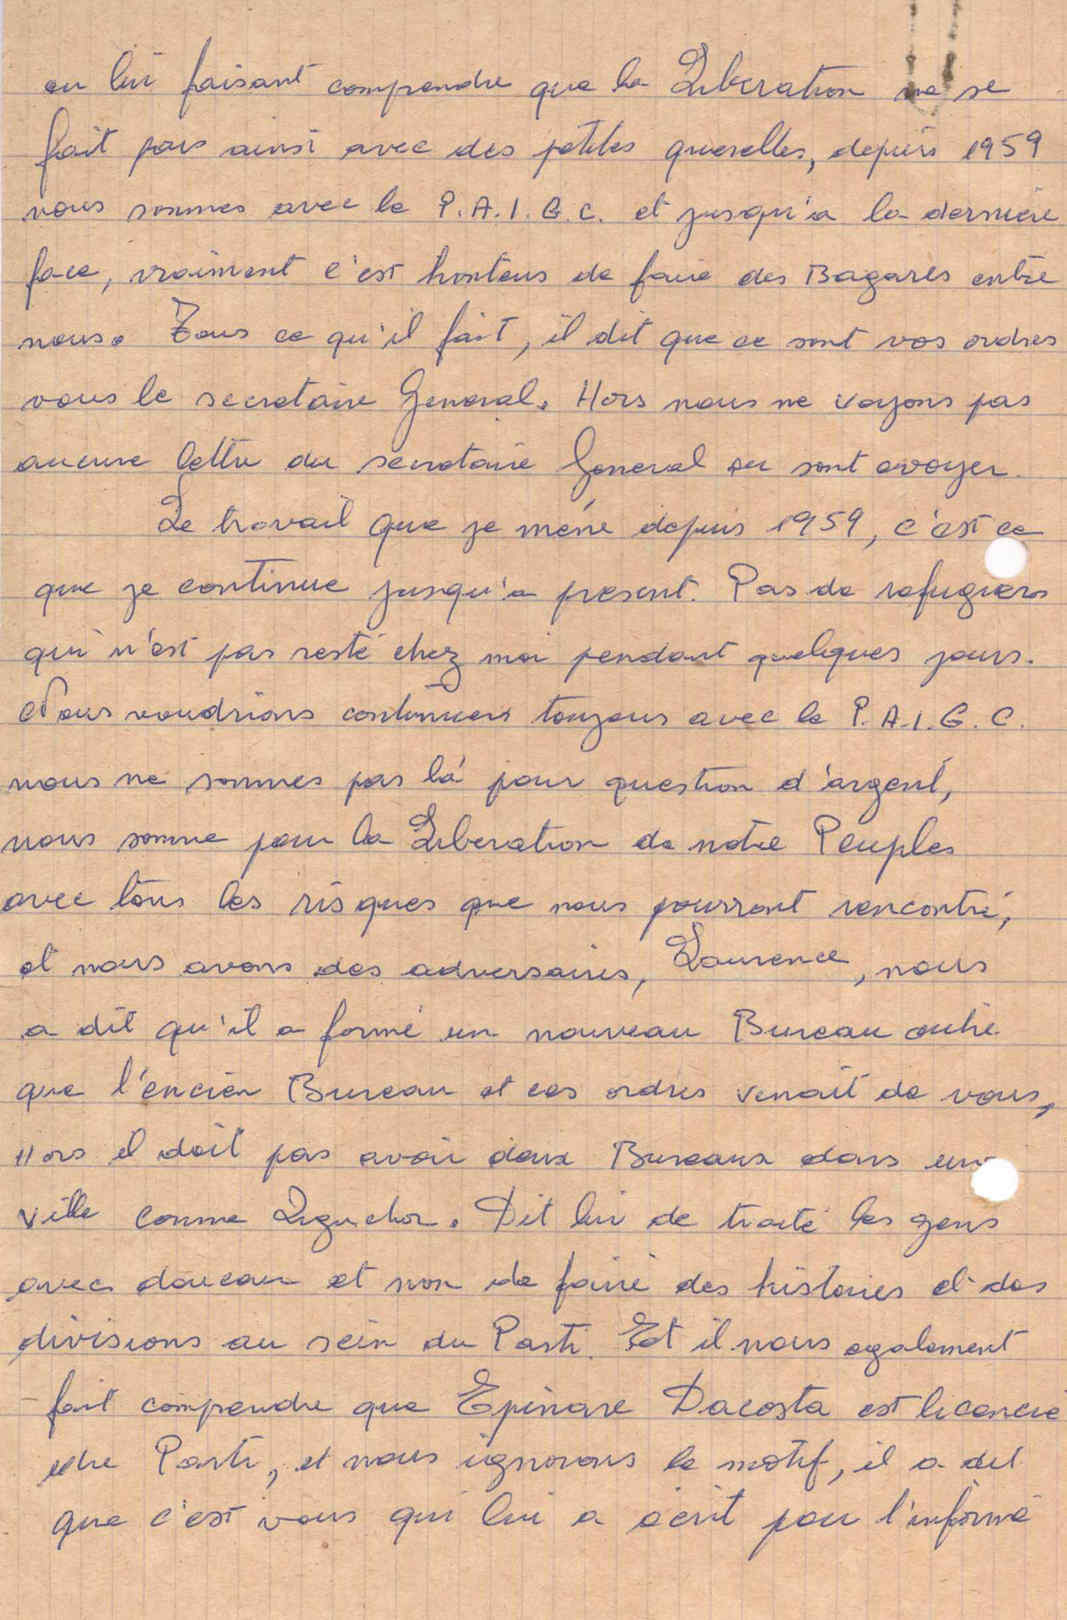 en lui faisant comprendre que la Liberation ne se
fait pas ainsi avec des petites querelles, depuis 1959
nous sommes avec le P.A.I.G.C. et jusqu'a la derniere
face, vraiment c'est honteus de faire des Bagares entre
nous. Tous ce qu'il fait, il dit que ce sont vos ordres
vous le secretaire General. Hors nous ne voyons pas
aucune lettre du secretaire General ou sont avoyer.
Le travail que je mène depuis 1959, c'est ce
que je continue jusqu'a present. Pas de refugiers
qui n'est pas resté chez moi pendant quelques jours.
Nous voudrions continuers toujous avec le P.A.I.G.C.
nous ne sommes pas là pour question d'argent,
nous somme pour la Liberation de notre Peuples
avec tous les risques que nous pourront rencontré,
et nous avons des adversaires, Laurence, nous
a dit qu'il a formé un nouveau Bureau outre
que l'encien Bureau et ces ordres venait de vous,
Hors il doit pas avoir deux Bureaux dans une
ville comme Ziguchor. Dit lui de traité les gens
avec douceur et non de faire des histoires et des
divisions au sein du Parti. Et il nous egalement
fait comprendre que Epinare Dacosta est licencié
du Parti, et nous ignorons le motif, il a dit
que c'est vous qui lui a écrit pour l'informé